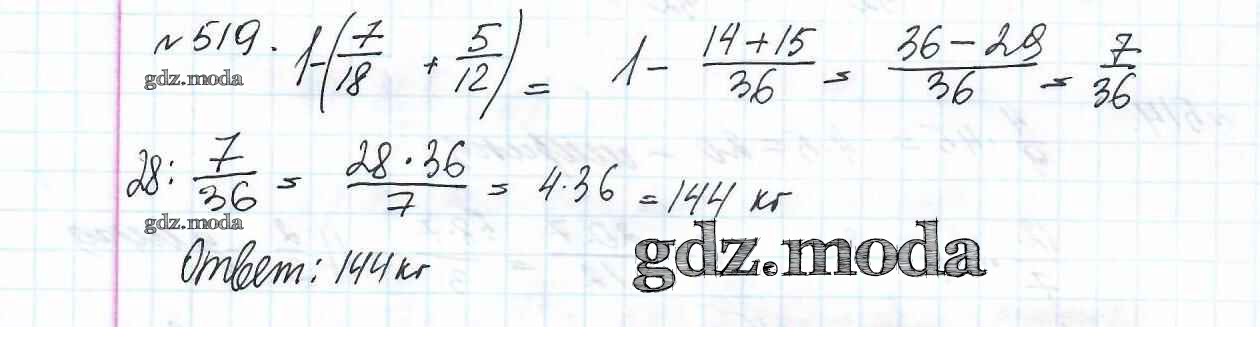 №519. 1-(7/18 + 5/12) = 1 - 14+15/36 = 36-29/36 = 7/36
gdz.moda
28: 7/36 = 28·36/7 = 4·36 = 144 кг
gdz.moda
Ответ: 144 кг
gdz.moda